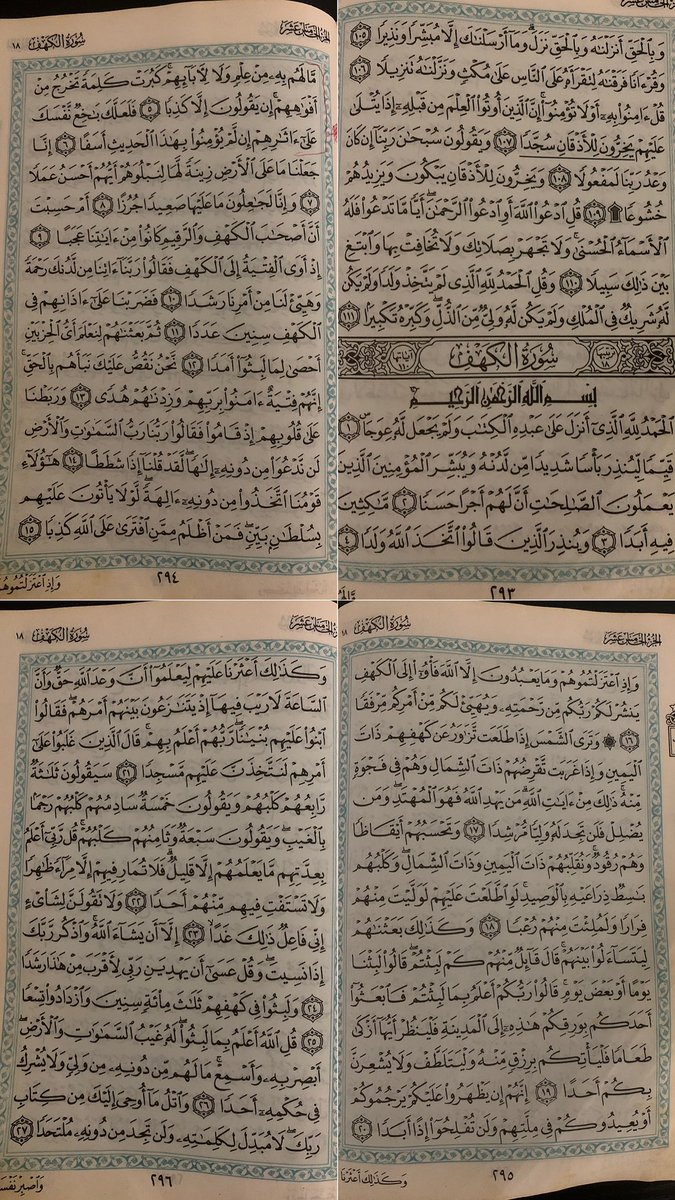 الجزء الخامس عشر
وَبِٱلْحَقِّ أَنزَلْنَٰهُ وَبِٱلْحَقِّ نَزَلَ ۗ وَمَآ أَرْسَلْنَٰكَ إِلَّا مُبَشِّرًا وَنَذِيرًا ١٠٥
وَقُرْءَانًا فَرَقْنَٰهُ لِتَقْرَأَهُۥ عَلَى ٱلنَّاسِ عَلَىٰ مُكْثٍ وَنَزَّلْنَٰهُ تَنزِيلًا ١٠٦
قُلْ ءَامِنُوا۟ بِهِۦٓ أَوْ لَا تُؤْمِنُوٓا۟ ۚ إِنَّ ٱلَّذِينَ أُوتُوا۟ ٱلْعِلْمَ مِن قَبْلِهِۦٓ إِذَا يُتْلَىٰ
عَلَيْهِمْ يَخِرُّونَ لِلْأَذْقَانِ سُجَّدًا ١٠٧ وَيَقُولُونَ سُبْحَٰنَ رَبِّنَآ إِن كَانَ
وَعْدُ رَبِّنَا لَمَفْعُولًا ١٠٨ وَيَخِرُّونَ لِلْأَذْقَانِ يَبْكُونَ وَيَزِيدُهُمْ
خُشُوعًا ۩ ١٠٩ قُلِ ٱدْعُوا۟ ٱللَّهَ أَوِ ٱدْعُوا۟ ٱلرَّحْمَٰنَ ۖ أَيًّا مَّا تَدْعُوا۟ فَلَهُ
ٱلْأَسْمَآءُ ٱلْحُسْنَىٰ ۚ وَلَا تَجْهَرْ بِصَلَاتِكَ وَلَا تُخَافِتْ بِهَا وَٱبْتَغِ
بَيْنَ ذَٰلِكَ سَبِيلًا ١١٠ وَقُلِ ٱلْحَمْدُ لِلَّهِ ٱلَّذِى لَمْ يَتَّخِذْ وَلَدًا وَلَمْ يَكُن
لَّهُۥ شَرِيكٌ فِى ٱلْمُلْكِ وَلَمْ يَكُن لَّهُۥ وَلِىٌّ مِّنَ ٱلذُّلِّ ۖ وَكَبِّرْهُ تَكْبِيرًۢا ١١١
ترتيبها ١٨ سُورَةُ الكَهْفِ آياتها ١١٠
بِسْمِ ٱللَّهِ ٱلرَّحْمَٰنِ ٱلرَّحِيمِ
ٱلْحَمْدُ لِلَّهِ ٱلَّذِىٓ أَنزَلَ عَلَىٰ عَبْدِهِ ٱلْكِتَٰبَ وَلَمْ يَجْعَل لَّهُۥ عِوَجَا ۜ ١
قَيِّمًا لِّيُنذِرَ بَأْسًا شَدِيدًا مِّن لَّدُنْهُ وَيُبَشِّرَ ٱلْمُؤْمِنِينَ ٱلَّذِينَ
يَعْمَلُونَ ٱلصَّٰلِحَٰتِ أَنَّ لَهُمْ أَجْرًا حَسَنًا ٢ مَّٰكِثِينَ
فِيهِ أَبَدًا ٣ وَيُنذِرَ ٱلَّذِينَ قَالُوا۟ ٱتَّخَذَ ٱللَّهُ وَلَدًا ٤
٢٩٣
مَّا لَهُم
الجزء الخامس عشر
سُورَةُ الكَهْفِ ١٨
مَّا لَهُم بِهِۦ مِنْ عِلْمٍ وَلَا لِـَٔابَآئِهِمْ ۚ كَبُرَتْ كَلِمَةً تَخْرُجُ مِنْ
أَفْوَٰهِهِمْ ۚ إِن يَقُولُونَ إِلَّا كَذِبًا ٥ فَلَعَلَّكَ بَٰخِعٌ نَّفْسَكَ
عَلَىٰٓ ءَاثَٰرِهِمْ إِن لَّمْ يُؤْمِنُوا۟ بِهَٰذَا ٱلْحَدِيثِ أَسَفًا ٦ إِنَّا
جَعَلْنَا مَا عَلَى ٱلْأَرْضِ زِينَةً لَّهَا لِنَبْلُوَهُمْ أَيُّهُمْ أَحْسَنُ عَمَلًا
٧ وَإِنَّا لَجَٰعِلُونَ مَا عَلَيْهَا صَعِيدًا جُرُزًا ٨ أَمْ حَسِبْتَ
أَنَّ أَصْحَٰبَ ٱلْكَهْفِ وَٱلرَّقِيمِ كَانُوا۟ مِنْ ءَايَٰتِنَا عَجَبًا ٩
إِذْ أَوَى ٱلْفِتْيَةُ إِلَى ٱلْكَهْفِ فَقَالُوا۟ رَبَّنَآ ءَاتِنَا مِن لَّدُنكَ رَحْمَةً
وَهَيِّئْ لَنَا مِنْ أَمْرِنَا رَشَدًا ١٠ فَضَرَبْنَا عَلَىٰٓ ءَاذَانِهِمْ فِى
ٱلْكَهْفِ سِنِينَ عَدَدًا ١١ ثُمَّ بَعَثْنَٰهُمْ لِنَعْلَمَ أَىُّ ٱلْحِزْبَيْنِ
أَحْصَىٰ لِمَا لَبِثُوٓا۟ أَمَدًا ١٢ نَّحْنُ نَقُصُّ عَلَيْكَ نَبَأَهُم بِٱلْحَقِّ ۚ
إِنَّهُمْ فِتْيَةٌ ءَامَنُوا۟ بِرَبِّهِمْ وَزِدْنَٰهُمْ هُدًى ١٣ وَرَبَطْنَا
عَلَىٰ قُلُوبِهِمْ إِذْ قَامُوا۟ فَقَالُوا۟ رَبُّنَا رَبُّ ٱلسَّمَٰوَٰتِ وَٱلْأَرْضِ
لَن نَّدْعُوَا۟ مِن دُونِهِۦٓ إِلَٰهًا ۖ لَّقَدْ قُلْنَآ إِذًا شَطَطًا ١٤ هَٰٓؤُلَآءِ
قَوْمُنَا ٱتَّخَذُوا۟ مِن دُونِهِۦٓ ءَالِهَةً ۖ لَّوْلَا يَأْتُونَ عَلَيْهِم
بِسُلْطَٰنٍۭ بَيِّنٍ ۖ فَمَنْ أَظْلَمُ مِمَّنِ ٱفْتَرَىٰ عَلَى ٱللَّهِ كَذِبًا ١٥
٢٩٤
وَإِذِ ٱعْتَزَلْتُمُوهُمْ
الجزء الخامس عشر
سُورَةُ الكَهْفِ ١٨
وَإِذِ ٱعْتَزَلْتُمُوهُمْ وَمَا يَعْبُدُونَ إِلَّا ٱللَّهَ فَأْوُۥٓا۟ إِلَى ٱلْكَهْفِ
يَنشُرْ لَكُمْ رَبُّكُم مِّن رَّحْمَتِهِۦ وَيُهَيِّئْ لَكُم مِّنْ أَمْرِكُم مِّرْفَقًا
١٦ ۞ وَتَرَى ٱلشَّمْسَ إِذَا طَلَعَت تَّزَٰوَرُ عَن كَهْفِهِمْ ذَاتَ
ٱلْيَمِينِ وَإِذَا غَرَبَت تَّقْرِضُهُمْ ذَاتَ ٱلشِّمَالِ وَهُمْ فِى فَجْوَةٍ
مِّنْهُ ۚ ذَٰلِكَ مِنْ ءَايَٰتِ ٱللَّهِ ۗ مَن يَهْدِ ٱللَّهُ فَهُوَ ٱلْمُهْتَدِ ۖ وَمَن
يُضْلِلْ فَلَن تَجِدَ لَهُۥ وَلِيًّا مُّرْشِدًا ١٧ وَتَحْسَبُهُمْ أَيْقَاظًا
وَهُمْ رُقُودٌ ۚ وَنُقَلِّبُهُمْ ذَاتَ ٱلْيَمِينِ وَذَاتَ ٱلشِّمَالِ ۖ وَكَلْبُهُم
بَٰسِطٌ ذِرَاعَيْهِ بِٱلْوَصِيدِ ۚ لَوِ ٱطَّلَعْتَ عَلَيْهِمْ لَوَلَّيْتَ مِنْهُمْ
فِرَارًا وَلَمُلِئْتَ مِنْهُمْ رُعْبًا ١٨ وَكَذَٰلِكَ بَعَثْنَٰهُمْ
لِيَتَسَآءَلُوا۟ بَيْنَهُمْ ۚ قَالَ قَآئِلٌ مِّنْهُمْ كَمْ لَبِثْتُمْ ۖ قَالُوا۟ لَبِثْنَا
يَوْمًا أَوْ بَعْضَ يَوْمٍ ۚ قَالُوا۟ رَبُّكُمْ أَعْلَمُ بِمَا لَبِثْتُمْ فَٱبْعَثُوٓا۟
أَحَدَكُم بِوَرِقِكُمْ هَٰذِهِۦٓ إِلَى ٱلْمَدِينَةِ فَلْيَنظُرْ أَيُّهَآ أَزْكَىٰ
طَعَامًا فَلْيَأْتِكُم بِرِزْقٍ مِّنْهُ وَلْيَتَلَطَّفْ وَلَا يُشْعِرَنَّ
بِكُمْ أَحَدًا ١٩ إِنَّهُمْ إِن يَظْهَرُوا۟ عَلَيْكُمْ يَرْجُمُوكُمْ
أَوْ يُعِيدُوكُمْ فِى مِلَّتِهِمْ وَلَن تُفْلِحُوٓا۟ إِذًا أَبَدًا ٢٠
٢٩٥
وَكَذَٰلِكَ أَعْثَرْنَا
الجزء الخامس عشر
سُورَةُ الكَهْفِ ١٨
وَكَذَٰلِكَ أَعْثَرْنَا عَلَيْهِمْ لِيَعْلَمُوٓا۟ أَنَّ وَعْدَ ٱللَّهِ حَقٌّ وَأَنَّ
ٱلسَّاعَةَ لَا رَيْبَ فِيهَآ إِذْ يَتَنَٰزَعُونَ بَيْنَهُمْ أَمْرَهُمْ ۖ فَقَالُوا۟
ٱبْنُوا۟ عَلَيْهِم بُنْيَٰنًا ۖ رَّبُّهُمْ أَعْلَمُ بِهِمْ ۚ قَالَ ٱلَّذِينَ غَلَبُوا۟ عَلَىٰٓ
أَمْرِهِمْ لَنَتَّخِذَنَّ عَلَيْهِم مَّسْجِدًا ٢١ سَيَقُولُونَ ثَلَٰثَةٌ
رَّابِعُهُمْ كَلْبُهُمْ وَيَقُولُونَ خَمْسَةٌ سَادِسُهُمْ كَلْبُهُمْ رَجْمًۢا
بِٱلْغَيْبِ ۖ وَيَقُولُونَ سَبْعَةٌ وَثَامِنُهُمْ كَلْبُهُمْ ۚ قُل رَّبِّىٓ أَعْلَمُ
بِعِدَّتِهِم مَّا يَعْلَمُهُمْ إِلَّا قَلِيلٌ ۗ فَلَا تُمَارِ فِيهِمْ إِلَّا مِرَآءً ظَٰهِرًا
وَلَا تَسْتَفْتِ فِيهِم مِّنْهُمْ أَحَدًا ٢٢ وَلَا تَقُولَنَّ لِشَا۟ىْءٍ
إِنِّى فَاعِلٌ ذَٰلِكَ غَدًا ٢٣ إِلَّآ أَن يَشَآءَ ٱللَّهُ ۚ وَٱذْكُر رَّبَّكَ
إِذَا نَسِيتَ وَقُلْ عَسَىٰٓ أَن يَهْدِيَنِ رَبِّى لِأَقْرَبَ مِنْ هَٰذَا رَشَدًا
٢٤ وَلَبِثُوا۟ فِى كَهْفِهِمْ ثَلَٰثَ مِا۟ئَةٍ سِنِينَ وَٱزْدَادُوا۟ تِسْعًا
٢٥ قُلِ ٱللَّهُ أَعْلَمُ بِمَا لَبِثُوا۟ ۖ لَهُۥ غَيْبُ ٱلسَّمَٰوَٰتِ وَٱلْأَرْضِ ۖ
أَبْصِرْ بِهِۦ وَأَسْمِعْ ۚ مَا لَهُم مِّن دُونِهِۦ مِن وَلِىٍّ وَلَا يُشْرِكُ
فِى حُكْمِهِۦٓ أَحَدًا ٢٦ وَٱتْلُ مَآ أُوحِىَ إِلَيْكَ مِن كِتَابِ
رَبِّكَ ۖ لَا مُبَدِّلَ لِكَلِمَٰتِهِۦ وَلَن تَجِدَ مِن دُونِهِۦ مُلْتَحَدًا ٢٧
٢٩٦
وَٱصْبِرْ نَفْسَكَ